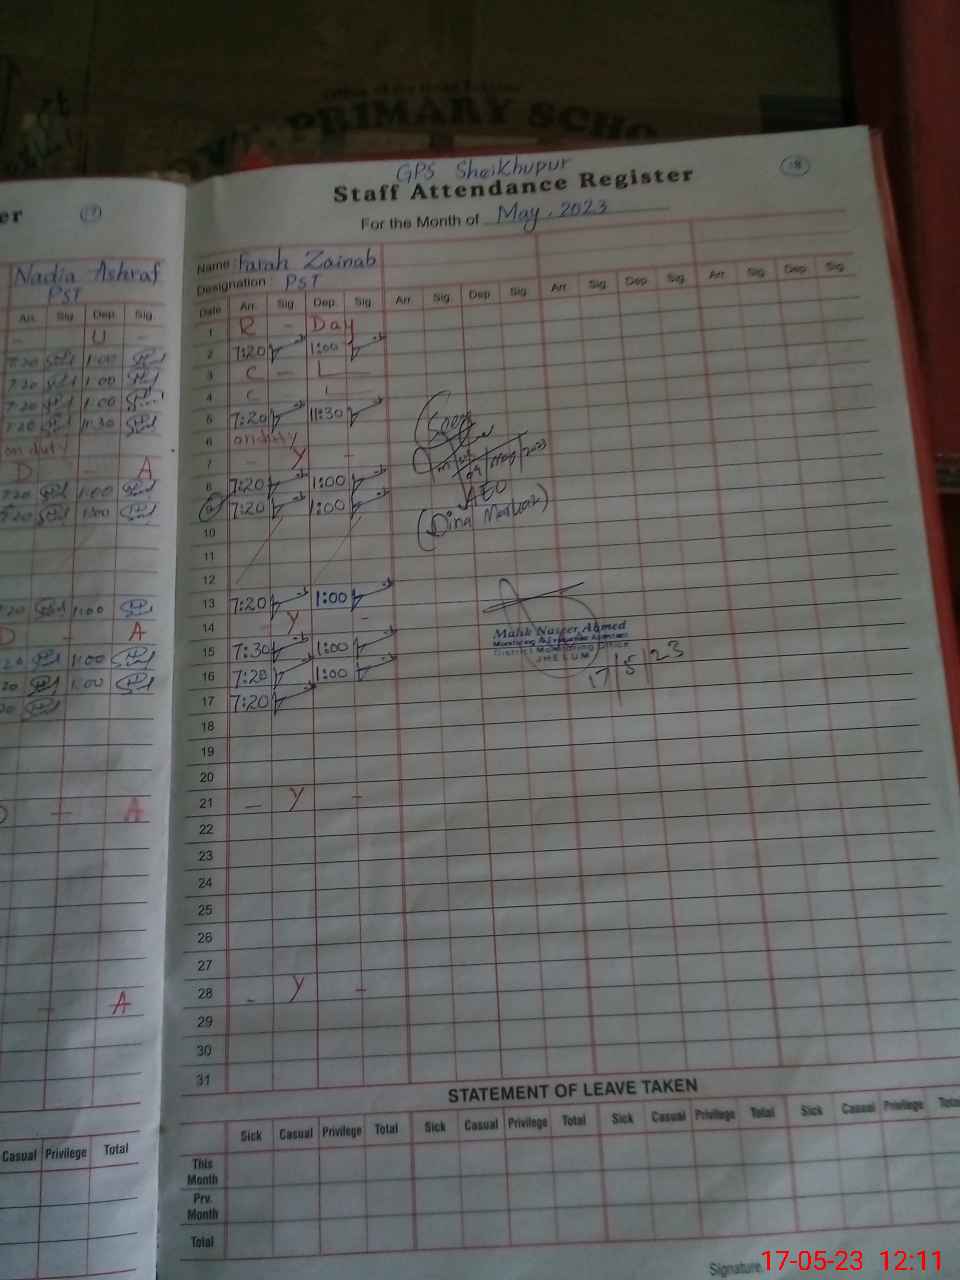 PRIMARY SCHO
er 17
Nadia Ashraf
PST
Arr. Sig Dep. Sig.
- U -
7:20 1:00
7:20 1:00
7:20 1:00
7:20 11:30
on duty
D - A
7:20 1:00
7:20 1:00
7:20 1:00
D - A
7:20 1:00
7:20 1:00
7:20
- A
- A
Casual Privilege Total
GPS Sheikhupur 18
Staff Attendance Register
For the Month of May, 2023
Name: Farah Zainab
Designation: PST
Date Arr. Sig Dep. Sig. Arr. Sig. Dep. Sig. Arr. Sig. Dep. Sig. Arr. Sig. Dep. Sig.
1 R - Day
2 7:20 1:00
3 C - L -
4 C - L -
5 7:20 11:30
6 on duty
7 - Y -
8 7:20 1:00
9 7:20 1:00
10
11
12
13 7:20 1:00
14 - Y -
15 7:30 1:00
16 7:20 1:00
17 7:20
18
19
20
21 - Y -
22
23
24
25
26
27
28 - Y -
29
30
31
Seen
09/May/2023
AEO
(Dina Markaz)
Malik Naseer Ahmed
Monitoring & Evaluation Assistant
District Monitoring Office
JHELUM
17/5/23
STATEMENT OF LEAVE TAKEN
Sick Casual Privilege Total Sick Casual Privilege Total Sick Casual Privilege Total Sick Casual Privilege Total
This Month
Prv. Month
Total
Signature
17-05-23 12:11